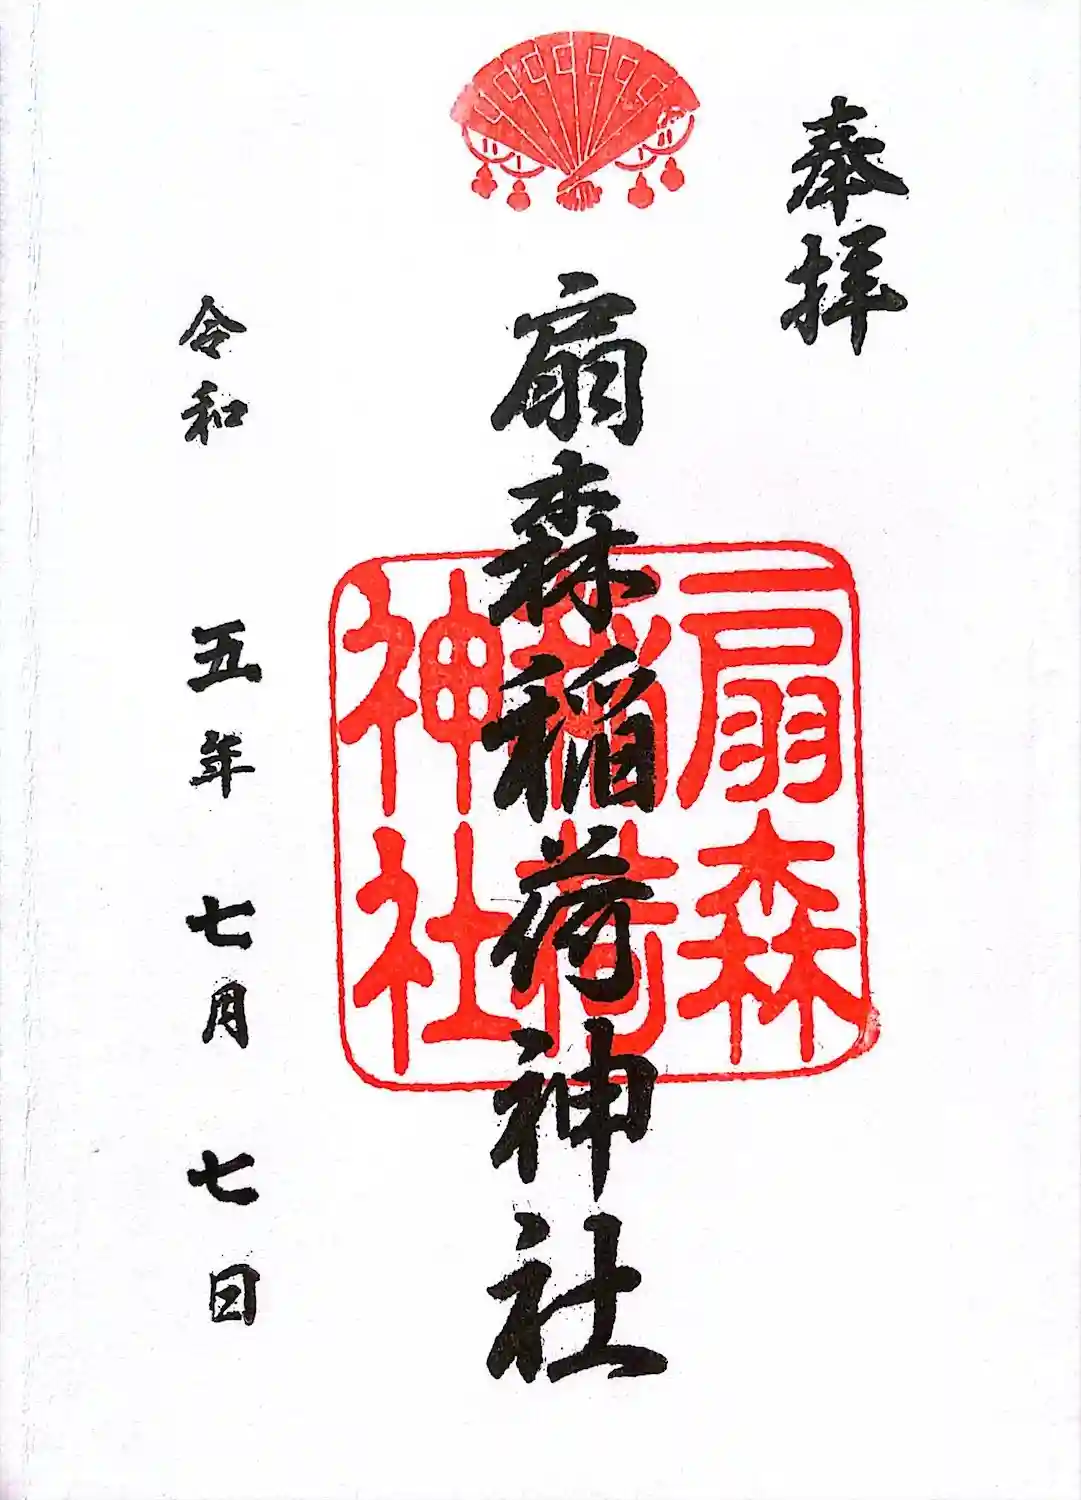 奉拝
扇森稲荷神社
扇森
稲荷
神社
令和五年七月七日